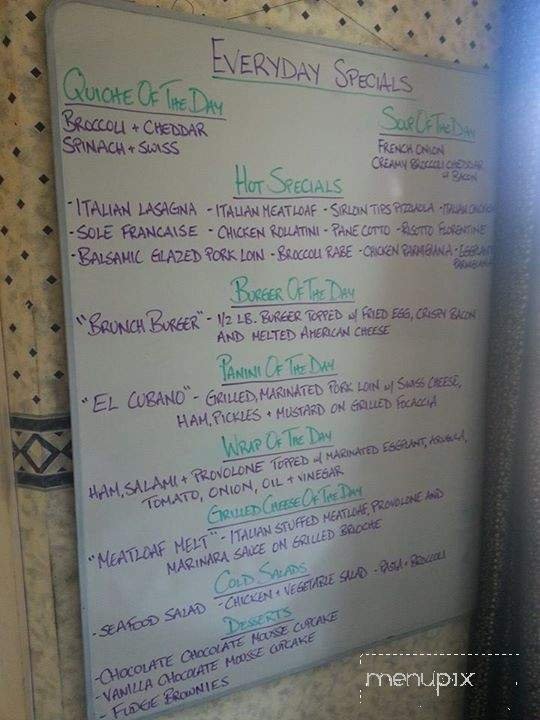 EVERYDAY SPECIALS
QUICHE OF THE DAY
BROCCOLI + CHEDDAR
SPINACH + SWISS
SOUP OF THE DAY
FRENCH ONION
CREAMY BROCCOLI CHEDDAR
w BACON
HOT SPECIALS
- ITALIAN LASAGNA - ITALIAN MEATLOAF - SIRLOIN TIPS PIZZIAOLA - ITALIAN CHICKEN
- SOLE FRANCAISE - CHICKEN ROLLATINI - PANE COTTO - RISOTTO FLORENTINE
- BALSAMIC GLAZED PORK LOIN - BROCCOLI RABE - CHICKEN PARMIGIANA - EGGPLANT
PARMIGIANA
BURGER OF THE DAY
"BRUNCH BURGER" - 1/2 LB. BURGER TOPPED w/ FRIED EGG, CRISPY BACON
AND MELTED AMERICAN CHEESE
PANINI OF THE DAY
"EL CUBANO" - GRILLED, MARINATED PORK LOIN w/ SWISS CHEESE,
HAM, PICKLES + MUSTARD ON GRILLED FOCACCIA
WRAP OF THE DAY
HAM, SALAMI + PROVOLONE TOPPED w/ MARINATED EGGPLANT, ARUGULA,
TOMATO, ONION, OIL + VINEGAR
GRILLED CHEESE OF THE DAY
"MEATLOAF MELT" - ITALIAN STUFFED MEATLOAF, PROVOLONE AND
MARINARA SAUCE ON GRILLED BRIOCHE
COLD SALADS
- SEAFOOD SALAD - CHICKEN + VEGETABLE SALAD - PASTA + BROCCOLI
DESSERTS
- CHOCOLATE CHOCOLATE MOUSSE CUPCAKE
- VANILLA CHOCOLATE MOUSSE CUPCAKE
- FUDGE BROWNIES
menupix